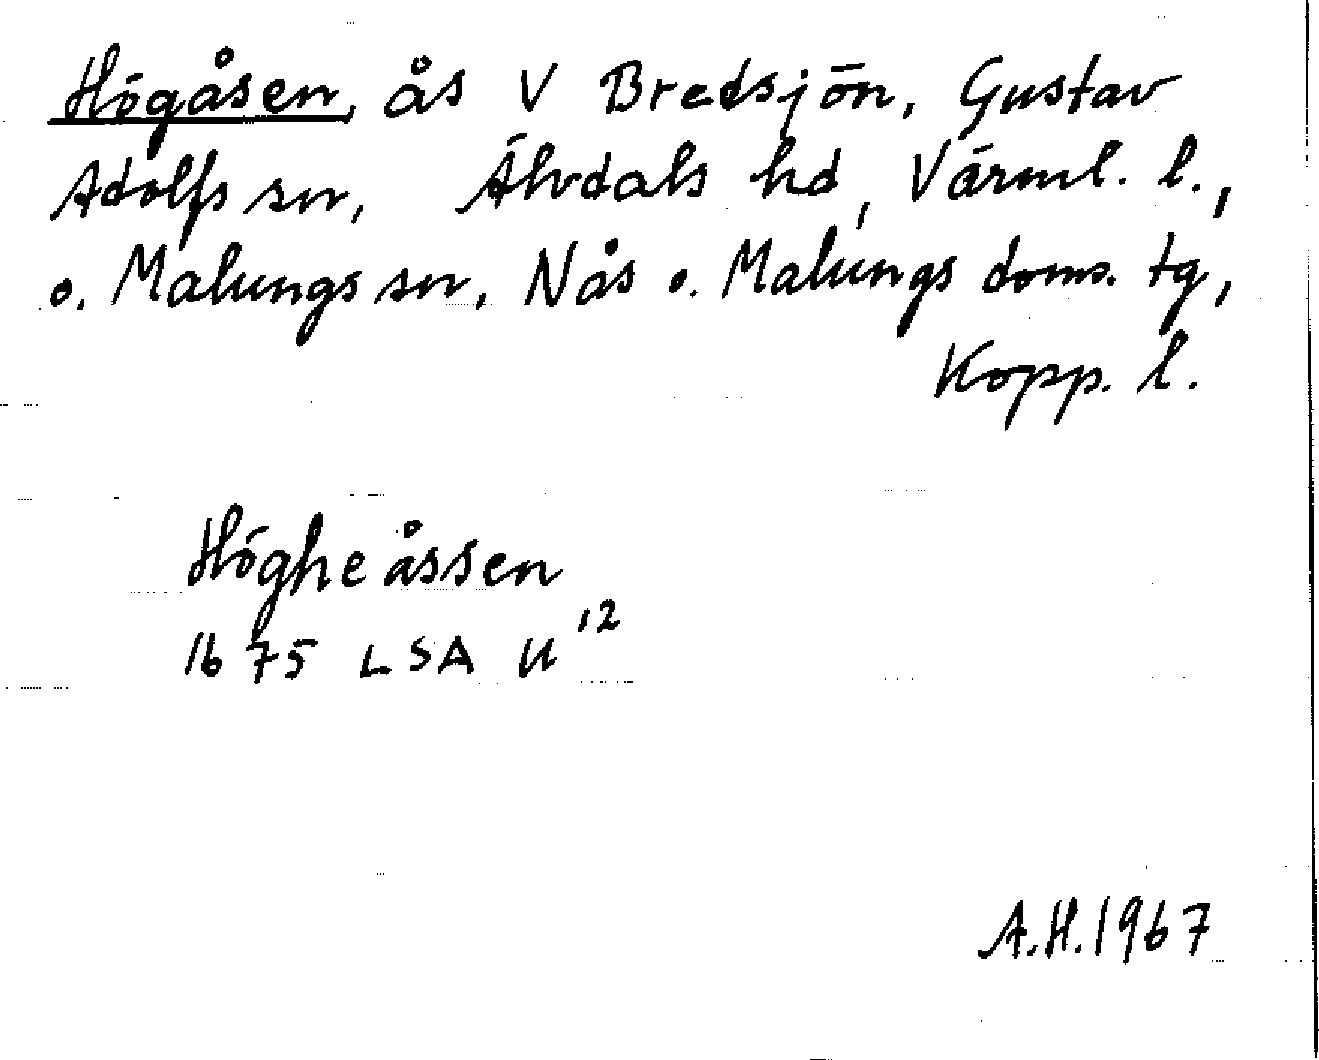 Högåsen, ås V Bredsjön, Gustav
Adolfs sn, Älvdals hd, Värml. l.,
o. Malungs sn, Nås o. Malungs doms. tg,
Kopp. l.
Högheåssen
1675 LSA U¹²
A.H. 1967